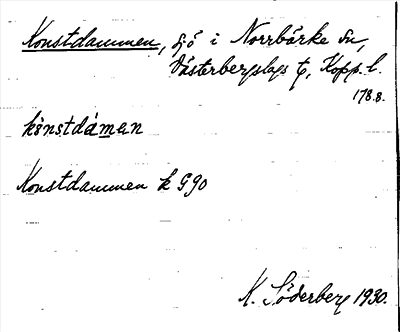 Konstdammen, sjö i Norrbärke sn,
Västerbergslags t, Kopp. l.
178.8.
kònstdáman
Konstdammen k G90
K. Söderberg 1930.